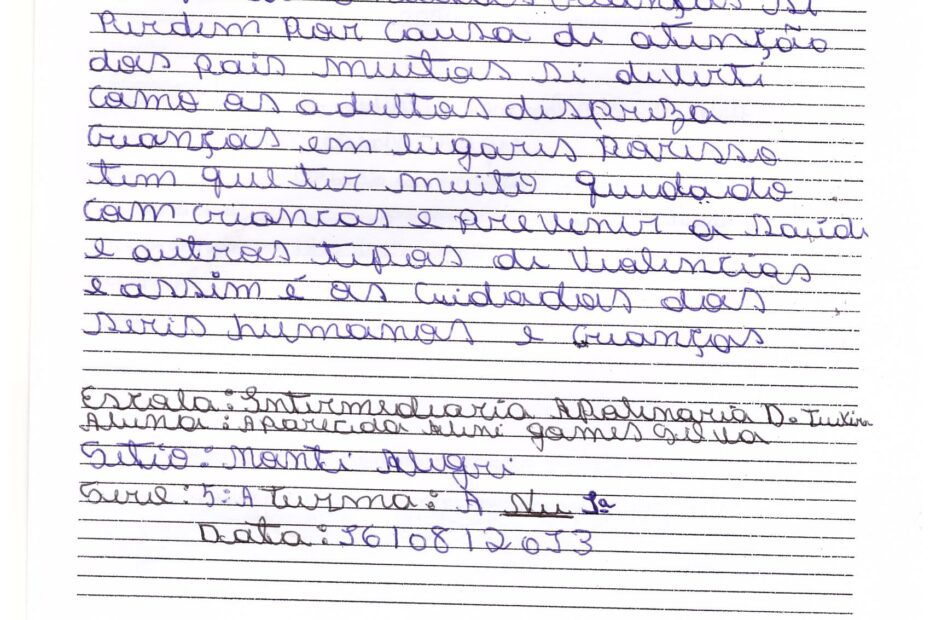 crianças si
Perdem Por causa di atenção
dos pais muitas si diverti
como os adultos dispreza
crianças em lugaris Porisso
tem que ter muito quidado
com criancas e previnir a saúdi
e outros tipos de violencias
e assim é os cuidados dos
seris humanos e crianças
Escola: Intermediaria Apolinaria D. Teixira
Aluna: Aparecida Alini gomes Silva
Sitio: Monti Alegri
Serie: 5: A turma: A Nu 1ª
Data: 16/08/2013